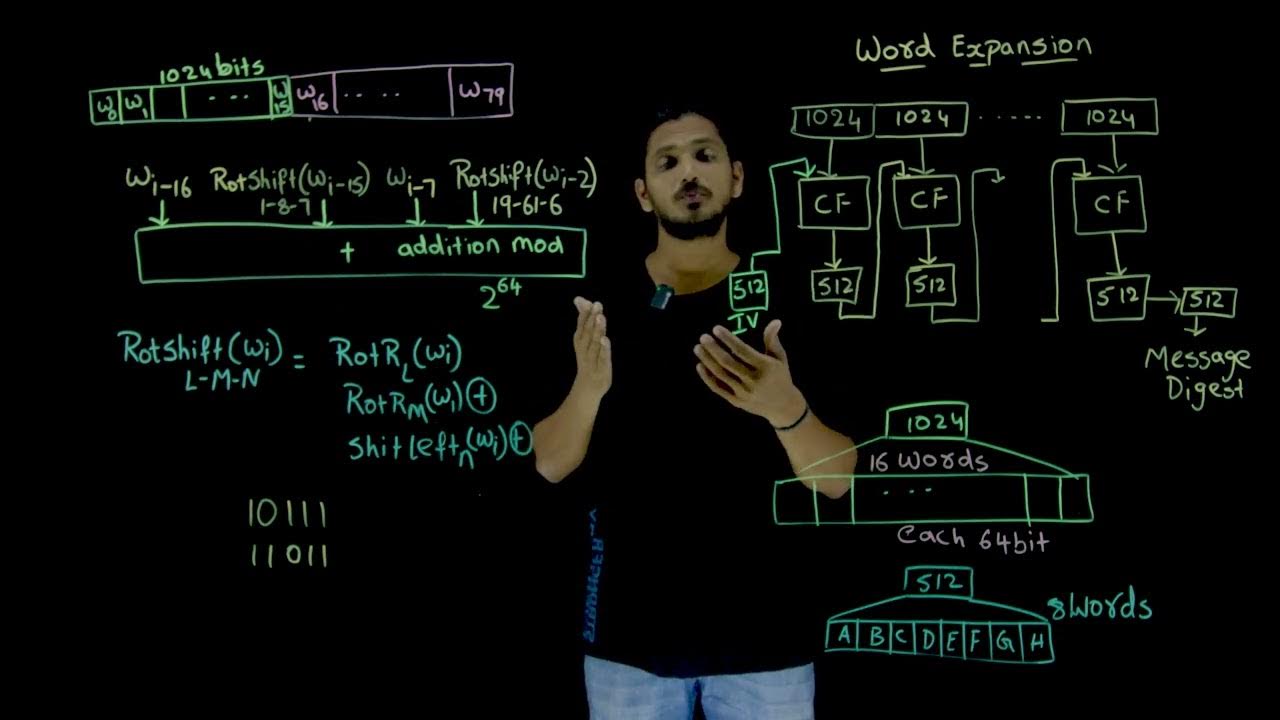 Word Expansion
1024 bits
W0 W1 ... W15 W16 ..... W79
Wi-16 RotShift(Wi-15) Wi-7 RotShift(Wi-2)
1-8-7 19-61-6
+ addition mod
2^64
RotShift(Wi) = RotR_L(Wi)
L-M-N
RotR_M(Wi) ⊕
ShitLeft_n(Wi) ⊕
10111
11011
1024 1024 ...... 1024
CF CF CF
512 512 512 512 512
IV
Message
Digest
1024
16 words
...
each 64bit
512
8 Words
A B C D E F G H